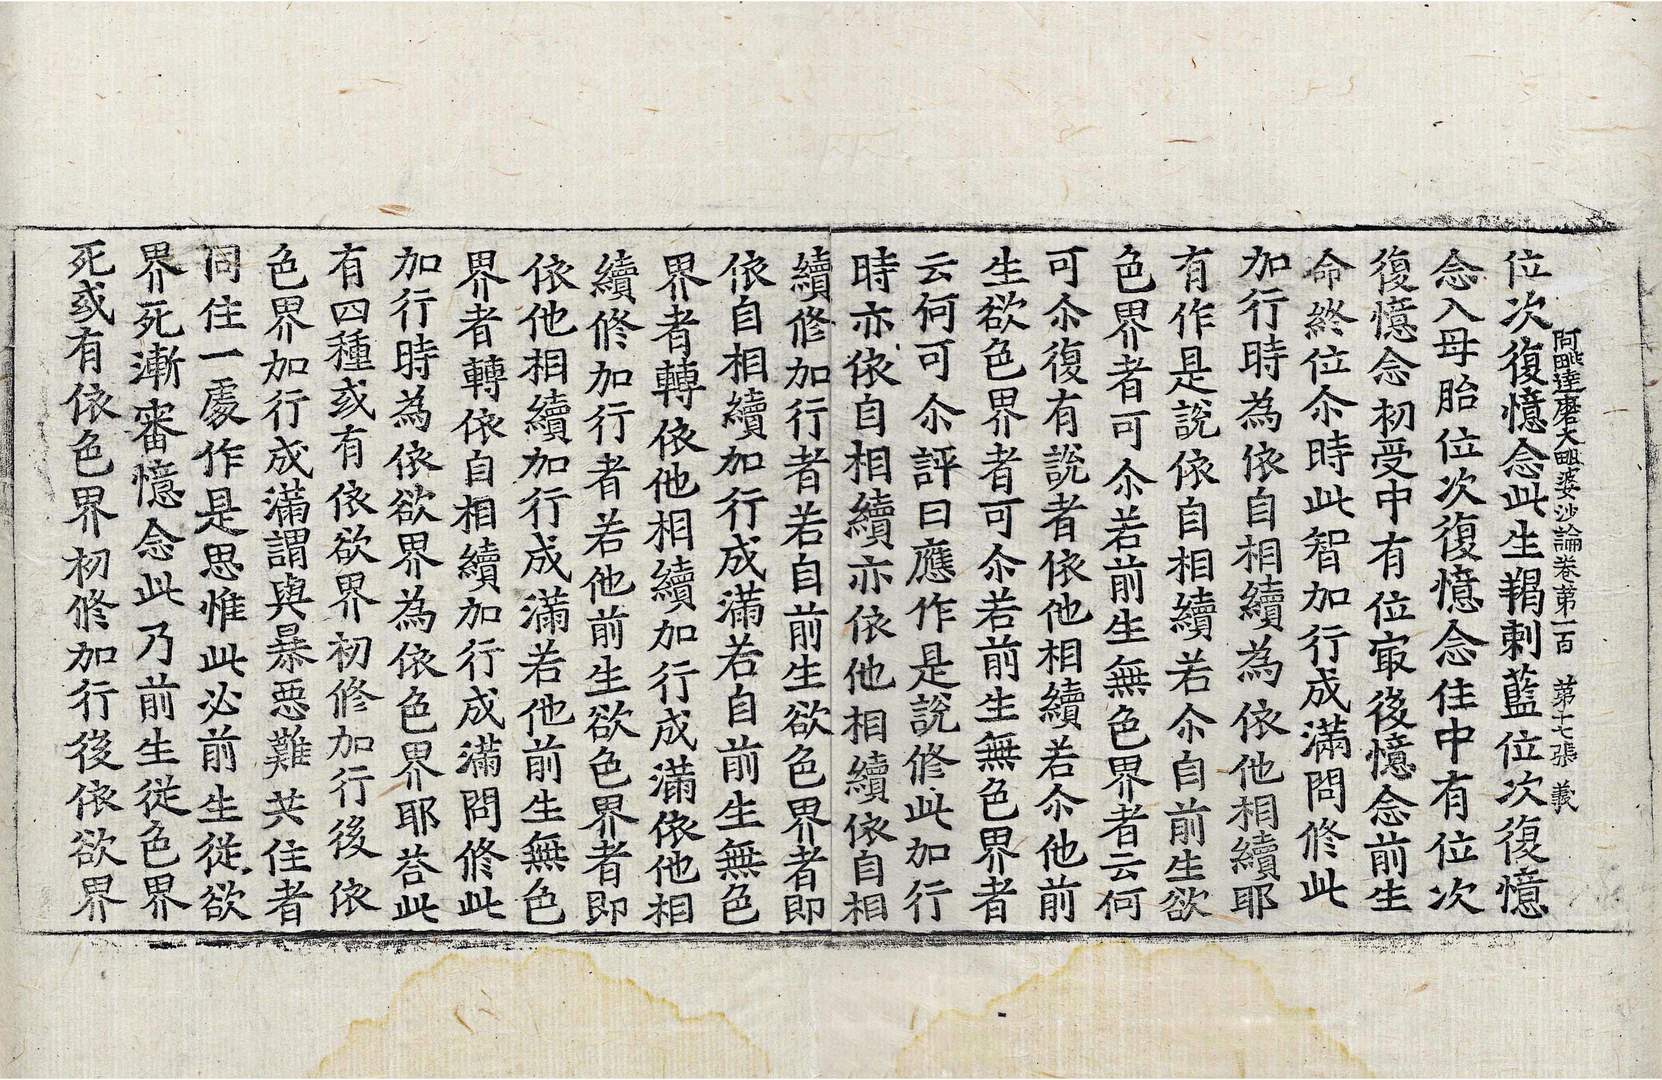 阿毗達磨大毗婆沙論卷第一百 第十七張 義
位次復憶念此生羯剌藍位次復憶
念入母胎位次復憶念住中有位次
復憶念初受中有位㝡後憶念前生
命終位尒時此智加行成滿問修此
加行時為依自相續為依他相續耶
有作是說依自相續若尒自前生欲
色界者可尒若前生無色界者云何
可尒復有說者依他相續若尒他前
生欲色界者可尒若前生無色界者
云何可尒評曰應作是說修此加行
時亦依自相續亦依他相續依自相
續修加行者若自前生欲色界者即
依自相續加行成滿若自前生無色
界者轉依他相續加行成滿依他相
續修加行者若他前生欲色界者即
依他相續加行成滿若他前生無色
界者轉依自相續加行成滿問修此
加行時為依欲界為依色界耶荅此
有四種或有依欲界初修加行後依
色界加行成滿謂與暴惡難共住者
同住一處作是思惟此必前生從欲
界死漸審憶念此乃前生從色界
死或有依色界初修加行後依欲界